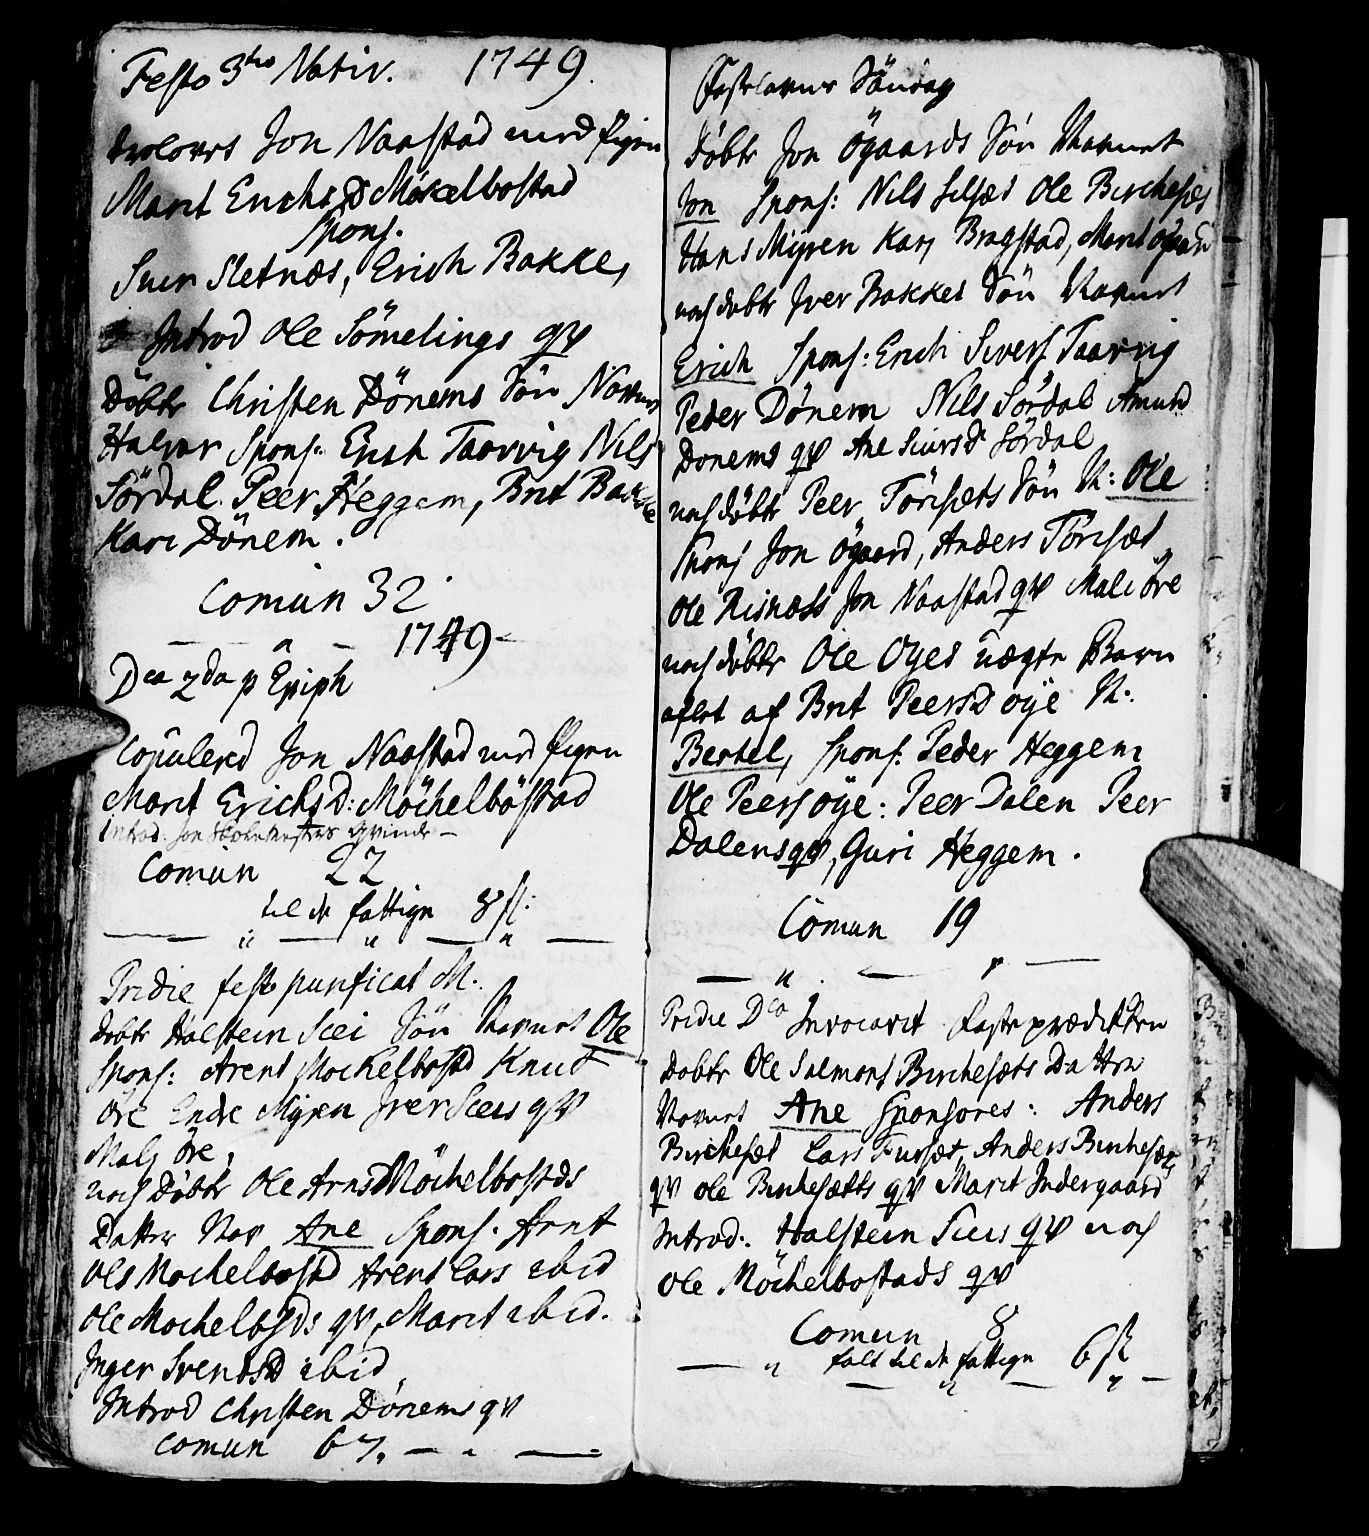 Festo 3tio Nativ. 1749.
trolovet Jon Naastad med Pigen
Marit Erichs D Möckelbostad
Spons.
Siver Sletnæs, Erich Bakke,
Introd Ole Sömelings qv
Döbtr Christen Dönems Sön Navnet
Halvor Spons. Erich Taarvig Nils
Sördal Peer Heggem, Brit Bakke
Kari Dönem.
Comun 32
1749
Dca 2da p Epiph
Copulered Jon Naastad med Pigen
Marit Erichs D: Möchelböstad
Introd: Jon Qvinde
Comun 22
til de fattige 8 ſſ:
Pridie festo purificat M.
döbte Halstein Scei Sön Navnet Ole
Spons: Arent Mockelbostd Knut
Öre Ende Myren Iver Sceis qv
Mali Öre,
noch Döbte Ole Arns Möchelbostds
Datter Nav Ane Spons. Arnt
Ols Mochelbostd Arent Lars ibid
Ole Mochelbstds qv, Marit ibid.
Inger SvendsD ibid
Introd Christen Dönems qv
Comun 67.
Fastelavns Söndag
Döbte Jon Ögaards Sön Navnet
Jon Spons: Nils Silsæt Ole Birchesæt
Hans Myren Kari Bragstad, Marit Ögaard
noch döbte Iver Bakkes Sön Navnet
Erich Spons: Erich Sivers Taarvig
Peder Dönem Nils Sördal Amund
Donems qv Ane SiversD Sördal
noch döbte Peer Törisæts Sön N: Ole
Spons Jon Ögaard, Anders Törisæt
Ole Risnæss Jon Naastad qv Mali Öre
noch döbte Ole Oyes uægte Barn
aflet af Brit PeersD Oye N:
Bertel, Spons. Peder Heggem
Ole Peers Oye: Peer Dalen Peer
Dalens qv, Guri Heggem.
Comun 19
Pridie Dca Invocavit Faste prædikken
Döbte Ole Salmons Birchesæts Datter
Navnet Ane Sponsores: Anders
Birchesæt Lars Fursæt, Anders Birchesæts
qv Ole Birchesætts qv Marit Indergaard
Introd: Halstein Sceis qv noch
Ole Möchelbostads qv
Comun 8
falt til de fattige 6 ſſ